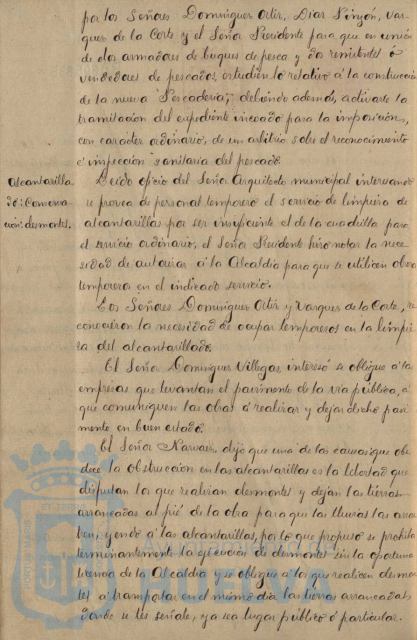 por los Señores Dominguez Ortiz, Diaz Pinzón, Vaz-
quez de la Corte y el Señor Presidente para que en union
de dos armadores de buques de pesca y dos remitentes ó
vendedores de pescados, estudien lo relativo á la construccion
de la nueva "Pescaderia"; debiendo además, activarse la
tramitacion del expediente incoado para la imposición,
con carácter ordinario, de un arbitrio sobre el reconocimiento
é inspeccion sanitaria del pescado.
Alcantarilla
do: Conserva
cion: desmontes.
Leido oficio del Señor Arquitecto municipal interesando
se provea de personal temporero el servicio de limpieza de
alcantarillas por ser insuficiente el de la cuadrilla para
el servicio ordinario, el Señor Presidente hizo notar la nece-
sidad de autorizar á la Alcaldia para que se utilicen obreros
temporeros en el indicado servicio.
Los Señores Dominguez Ortiz y Vazquez de la Corte, re-
conocieron la necesidad de ocupar temporeros en la limpie
za del alcantarillado.
El Señor Dominguez Villegas interesó se obligue á las
empresas que levantan el pavimento de la via pública, á
que comuniquen las obras á realizar y dejar dicho pavi-
mento en buen estado.
El Señor Narvaez dijo que una de las causas que obe-
dece la obstruccion en las alcantarillas es la libertad que
disfrutan los que realizan desmontes y dejan las tierras
arrancadas al pié de la obra para que las lluvias las arras
tren, yendo á las alcantarillas, por lo que propuso se prohiba
terminantemente la ejecucion de desmontes sin la oportuna
licencia de la Alcaldia y se obligue á los que realicen desmon
tes á transportar en el mismo dia las tierras arrancadas,
donde se les señale, ya sea lugar público ó particular.